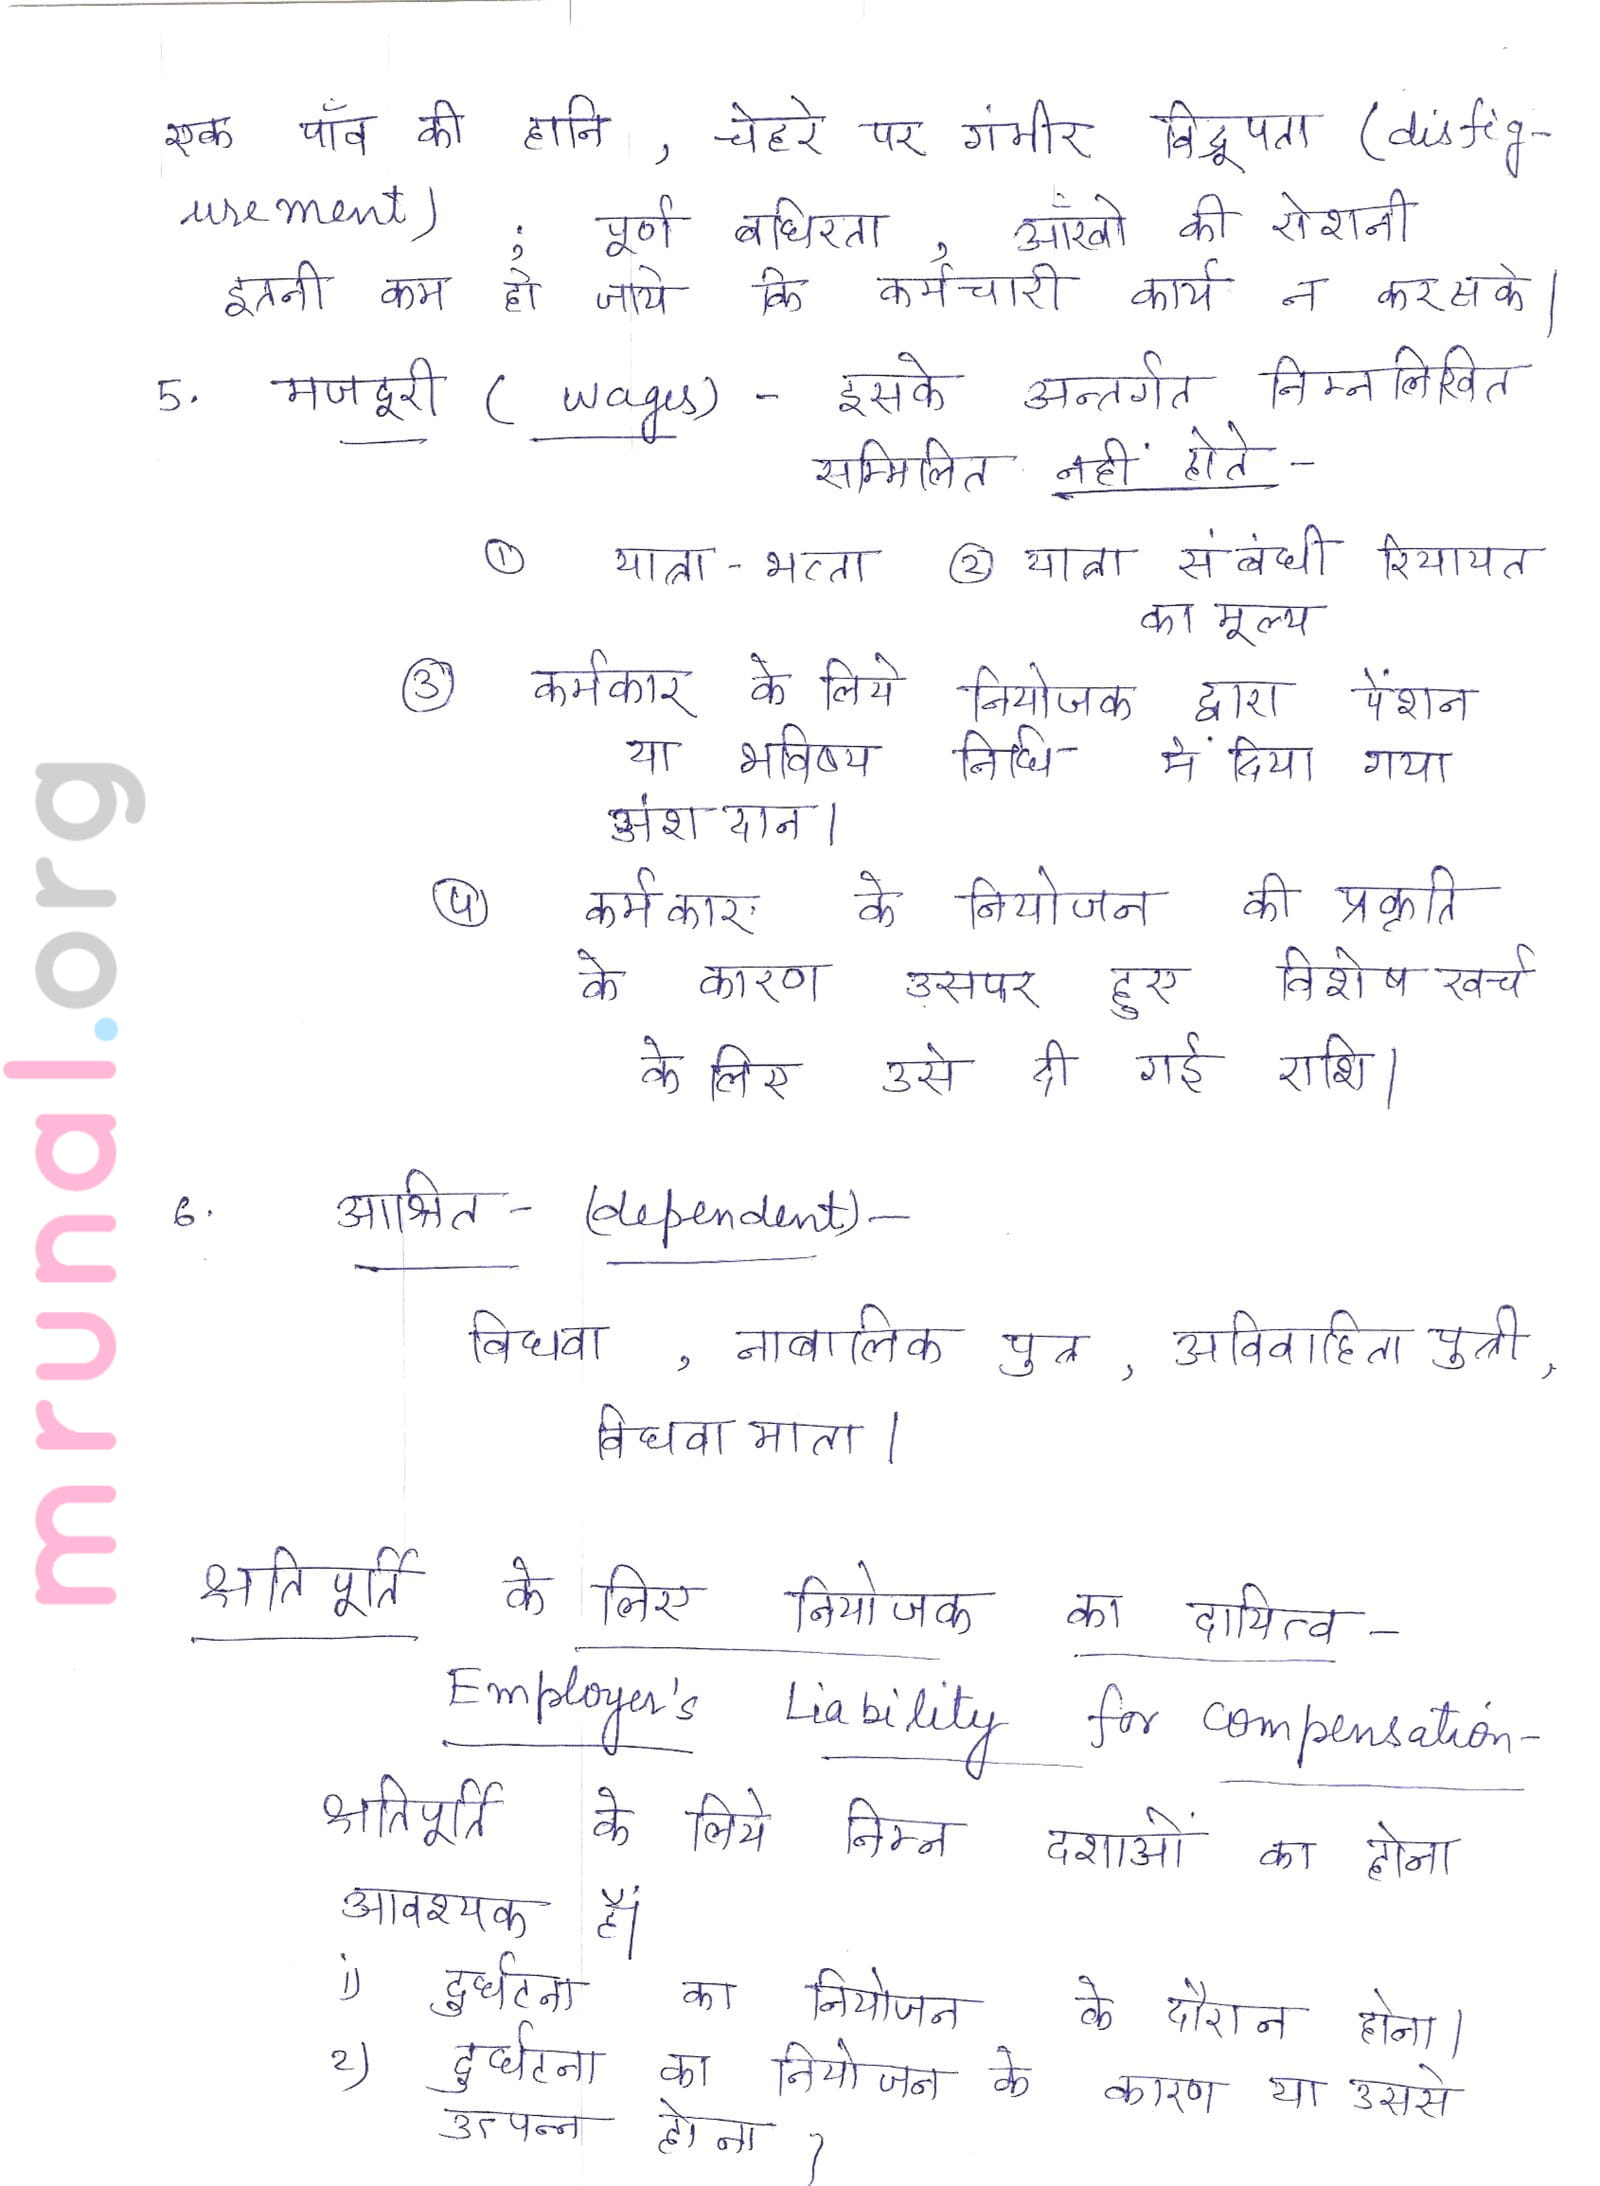 एक पाँव की हानि, चेहरे पर गंभीर विद्रूपता (disfig-
urement) ; पूर्ण बधिरता, आँखो की रोशनी
इतनी कम हो जाये कि कर्मचारी कार्य न कर सके।
5. मजदूरी (wages) - इसके अन्तर्गत निम्नलिखित
सम्मिलित नहीं होते -
① यात्रा-भत्ता ② यात्रा संबंधी रियायत
का मूल्य
③ कर्मकार के लिये नियोजक द्वारा पेंशन
या भविष्य निधि में दिया गया
अंशदान।
④ कर्मकार के नियोजन की प्रकृति
के कारण उसपर हुए विशेष खर्च
के लिए उसे दी गई राशि।
6. आश्रित - (dependent) -
विधवा, नाबालिक पुत्र, अविवाहिता पुत्री,
विधवा माता।
क्षतिपूर्ति के लिए नियोजक का दायित्व -
Employer's Liability for Compensation -
क्षतिपूर्ति के लिये निम्न दशाओं का होना
आवश्यक हैं।
1) दुर्घटना का नियोजन के दौरान होना।
2) दुर्घटना का नियोजन के कारण या उससे
उत्पन्न होना,
mrunal.org